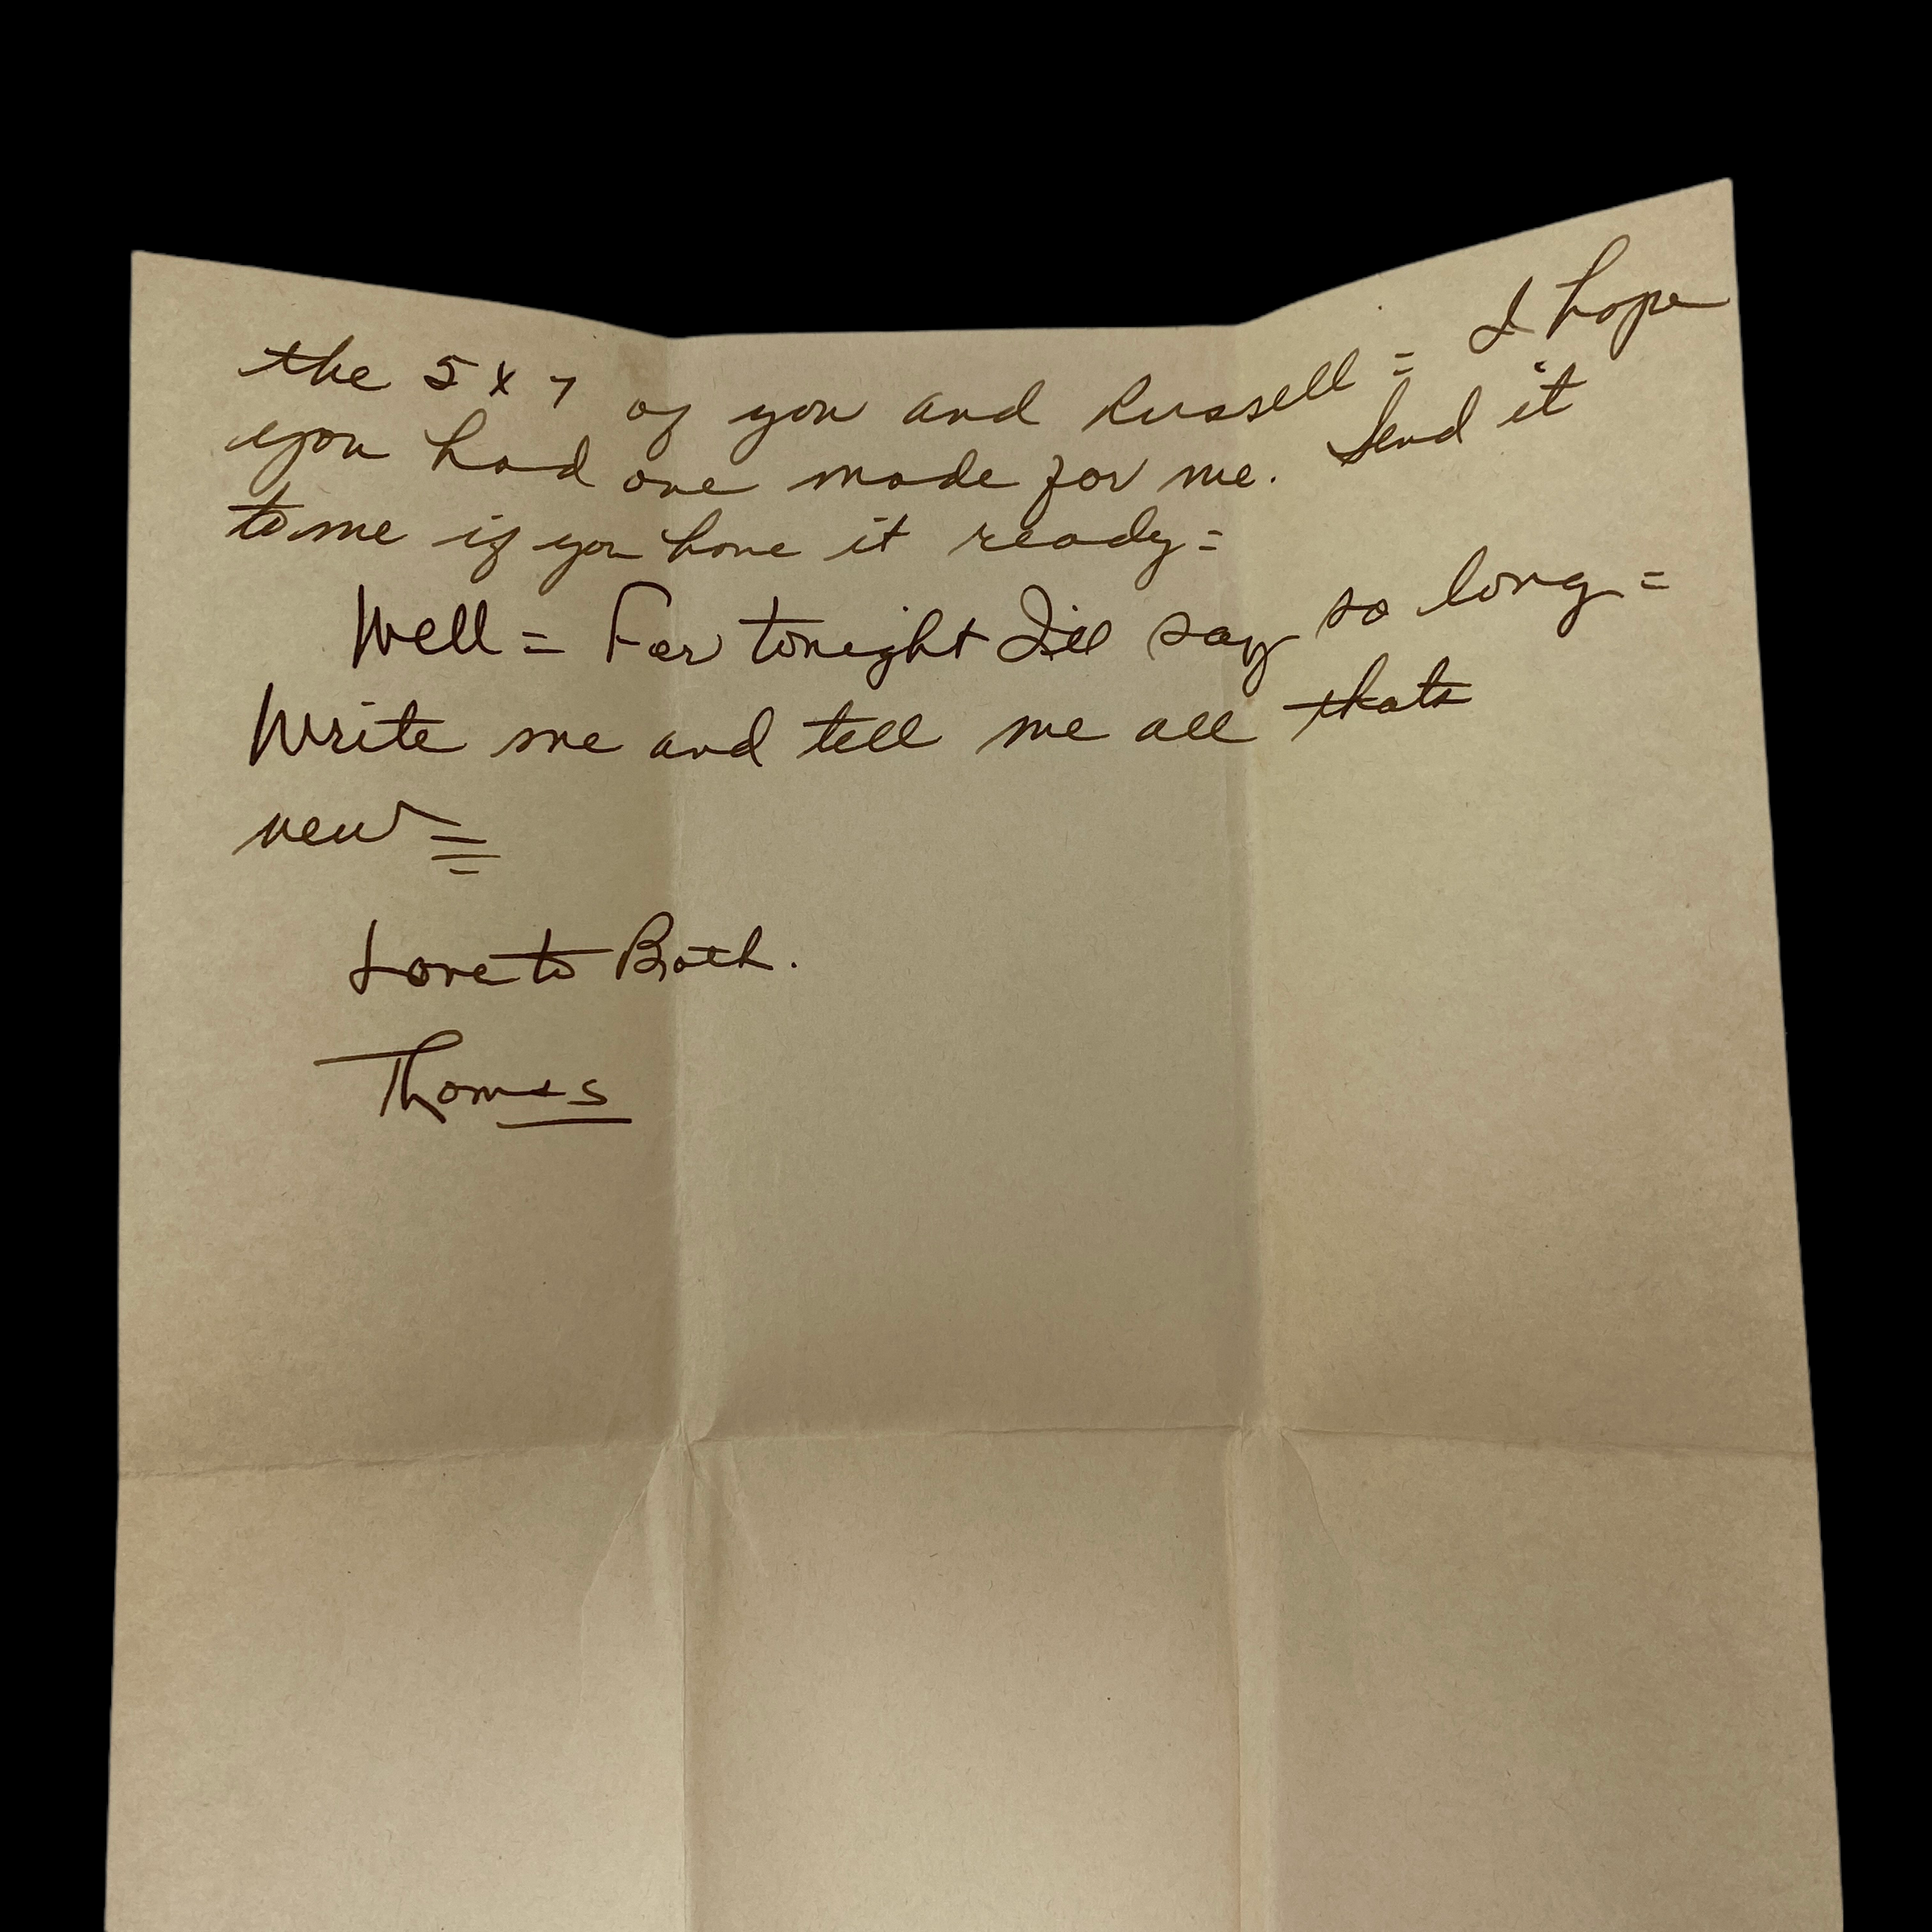 the 5 x 7 of you and Russell = I hope
you had one made for me. Send it
to me if you have it ready =
Well = For tonight I'll say so long =
Write me and tell me all thats
new =
Love to Both.
Thomas